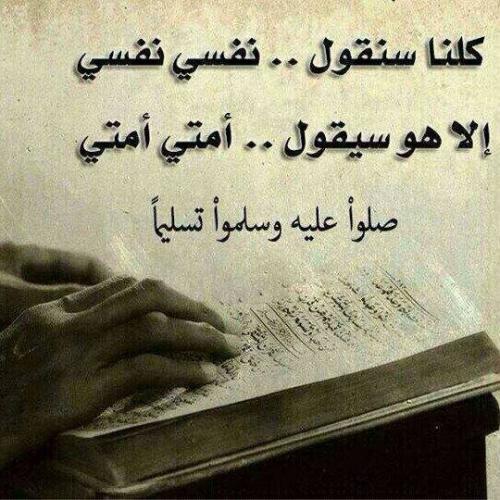 كلنا سنقول .. نفسي نفسي
إلا هو سيقول .. أمتي أمتي
صلواْ عليه وسلمواْ تسليماً